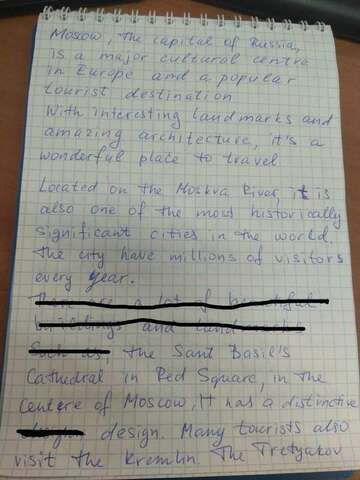 Moscow, the capital of Russia,
is a major cultural centre
in Europe and a popular
tourist destination
With interesting landmarks and
amazing architecture, it's a
wonderful place to travel
Located on the Moskva River, it is
also one of the most historically
significant cities in the world.
The city have millions of visitors
every year.
There are a lot of beautiful
buildings and landmarks
Such as the Sant Basil's
Cathedral in Red Square, in the
centere of Moscow, It has a distinctive
design. Many tourists also
visit the Kremlin. The Tretyakov